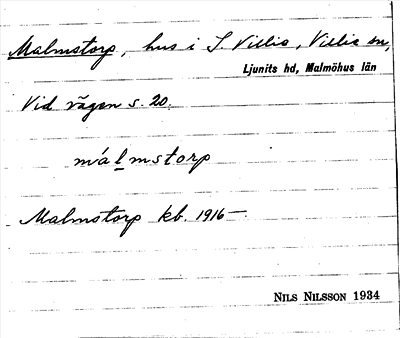 Malmstorp, hus i S. Villie, Villie sn,
Ljunits hd, Malmöhus län
Vid vägen s. 20.
málmstorp
Malmstorp kb. 1916–
NILS NILSSON 1934